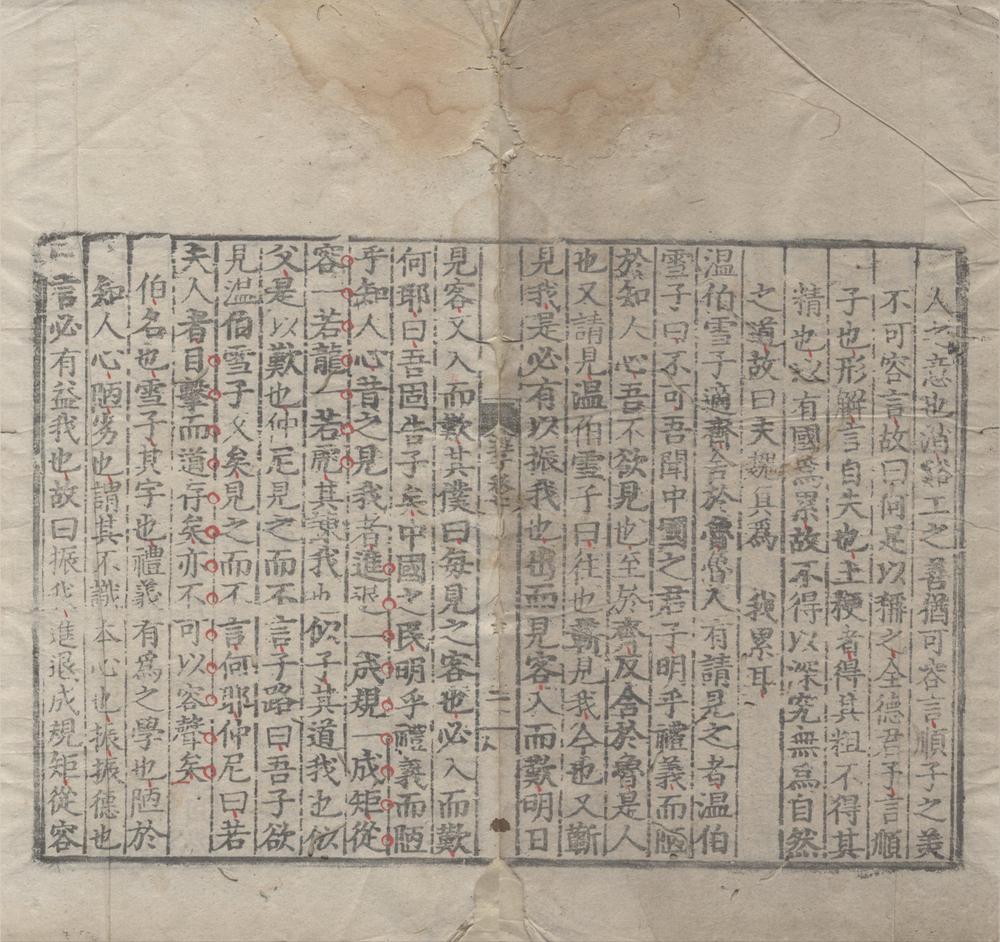 人之意也消谿工之善猶可容言順子之美
不可容言故曰何足以稱之全德君子言順
子也形解言自失也土梗者得其粗不得其
精也以有國爲累故不得以深究無爲自然
之道故曰夫魏眞爲我累耳
温伯雪子適齊舍於魯魯人有請見之者温伯
雪子曰不可吾聞中國之君子明乎禮義而陋
於知人心吾不欲見也至於齊反舍於魯是人
也又請見温伯雪子曰往也蘄見我今也又蘄
見我是必有以振我也出而見客入而歎明日
見客又入而歎其僕曰每見之客也必入而歎
何耶曰吾固告子矣中國之民明乎禮義而陋
乎知人心昔之見我者進退一成規一成矩從
容一若龍一若虎其諫我也似子其道我也似
父是以歎也仲尼見之而不言子路曰吾子欲
見温伯雪子久矣見之而不言何耶仲尼曰若
夫人者目擊而道存矣亦不可以容聲矣
伯名也雪子其字也禮義有爲之學也陋於
知人心陋劣也謂其不識本心也振振德也
言必有益我也故曰振我進退成規矩從容